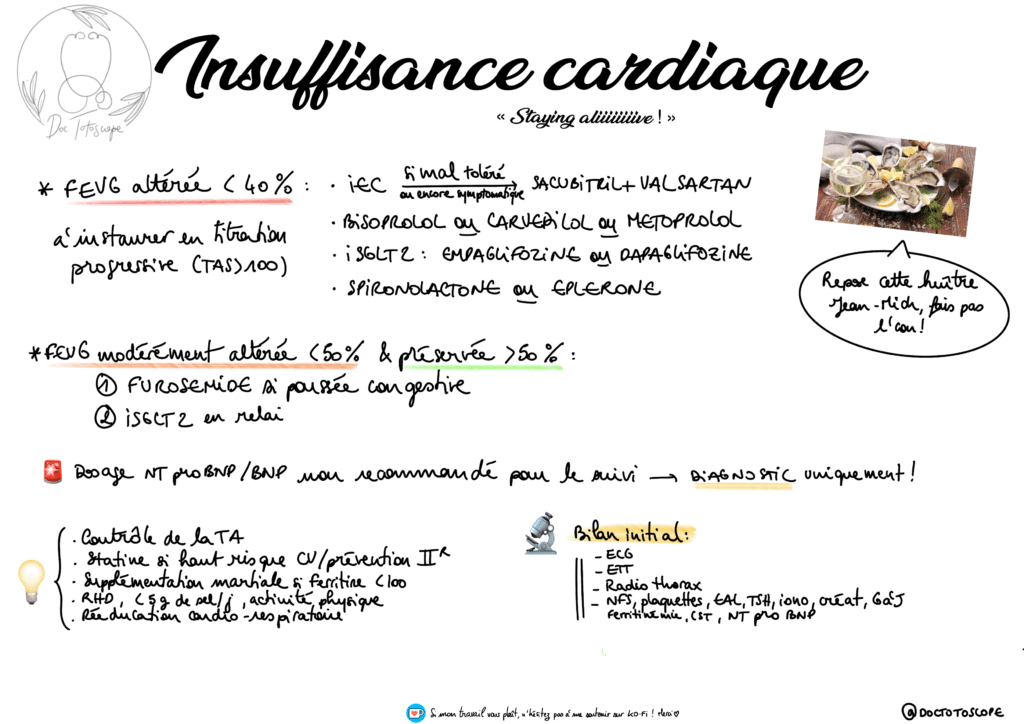 Doc Totoscope
Insuffisance cardiaque
« Staying aliiiiiiiive ! »
* FEVG altérée < 40% :
à instaurer en titration
progressive (TAS>100)
· iEC si mal toléré ou encore symptomatique → SACUBITRIL + VALSARTAN
· BISOPROLOL ou CARVEDILOL ou METOPROLOL
· iSGLT2 : EMPAGLIFOZINE ou DAPAGLIFOZINE
· SPIRONOLACTONE ou EPLERONE
Repose cette huître
Jean-Mich, fais pas
l'con!
* FEVG modérément altérée <50% & préservée >50% :
① FUROSEMIDE si poussée congestive
② iSGLT2 en relai
Dosage NT proBNP/BNP non recommandé pour le suivi → DIAGNOSTIC uniquement !
· Contrôle de la TA
· Statine si haut risque CV/prévention IIR
· Supplémentation martiale si ferritine <100
· RHD, <5g de sel/j, activité physique
· Rééducation cardio-respiratoire
Bilan initial:
- ECG
- ETT
- Radio thorax
- NFS, plaquettes, EAL, TSH, iono, créat, GàJ
Ferritinémie, CST, NT pro BNP
Si mon travail vous plaît, n'hésitez pas à me soutenir sur KO-Fi ! Merci ♡
@DOCTOTOSCOPE